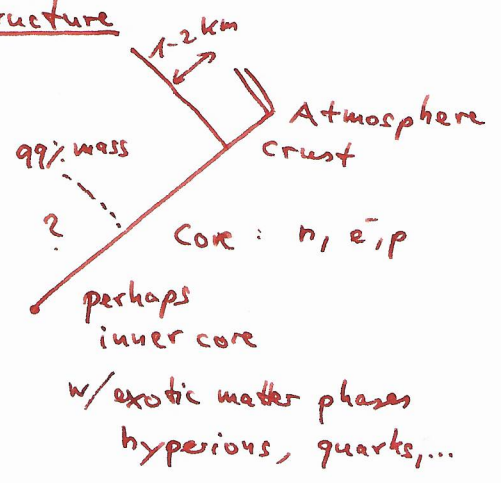 ructure
1-2 km
Atmosphere
Crust
99% mass
?
Core : n, e⁻, p
perhaps
inner core
w/ exotic matter phases
hyperions, quarks,...